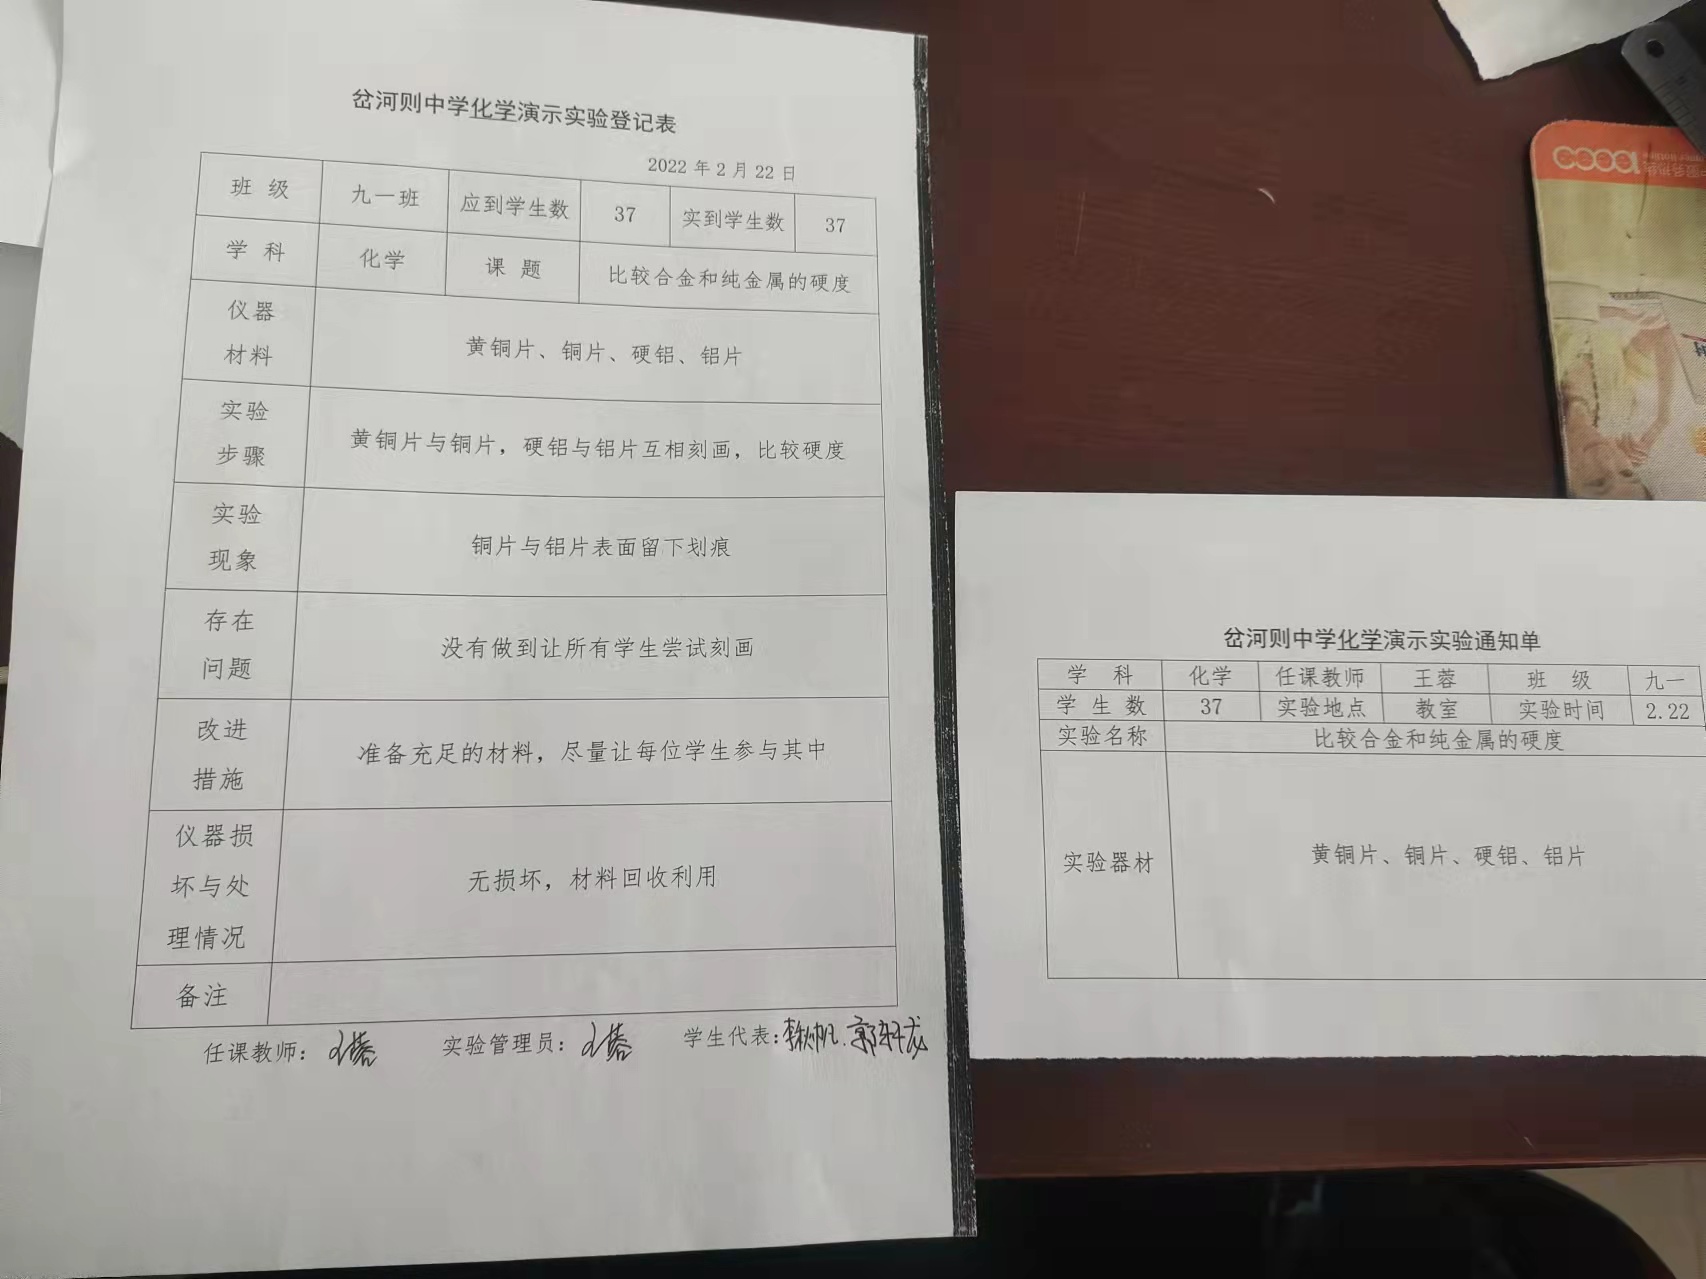 岔河则中学化学演示实验登记表
2022 年 2 月 22 日
班 级 九一班 应到学生数 37 实到学生数 37
学 科 化学 课 题 比较合金和纯金属的硬度
仪器
材料
黄铜片、铜片、硬铝、铝片
实验
步骤
黄铜片与铜片，硬铝与铝片互相刻画，比较硬度
实验
现象
铜片与铝片表面留下划痕
存在
问题
没有做到让所有学生尝试刻画
改进
措施
准备充足的材料，尽量让每位学生参与其中
仪器损
坏与处
理情况
无损坏，材料回收利用
备注
任课教师：王蓉 实验管理员：王蓉 学生代表：
岔河则中学化学演示实验通知单
学 科 化学 任课教师 王蓉 班 级 九一
学 生 数 37 实验地点 教室 实验时间 2.22
实验名称 比较合金和纯金属的硬度
实验器材 黄铜片、铜片、硬铝、铝片